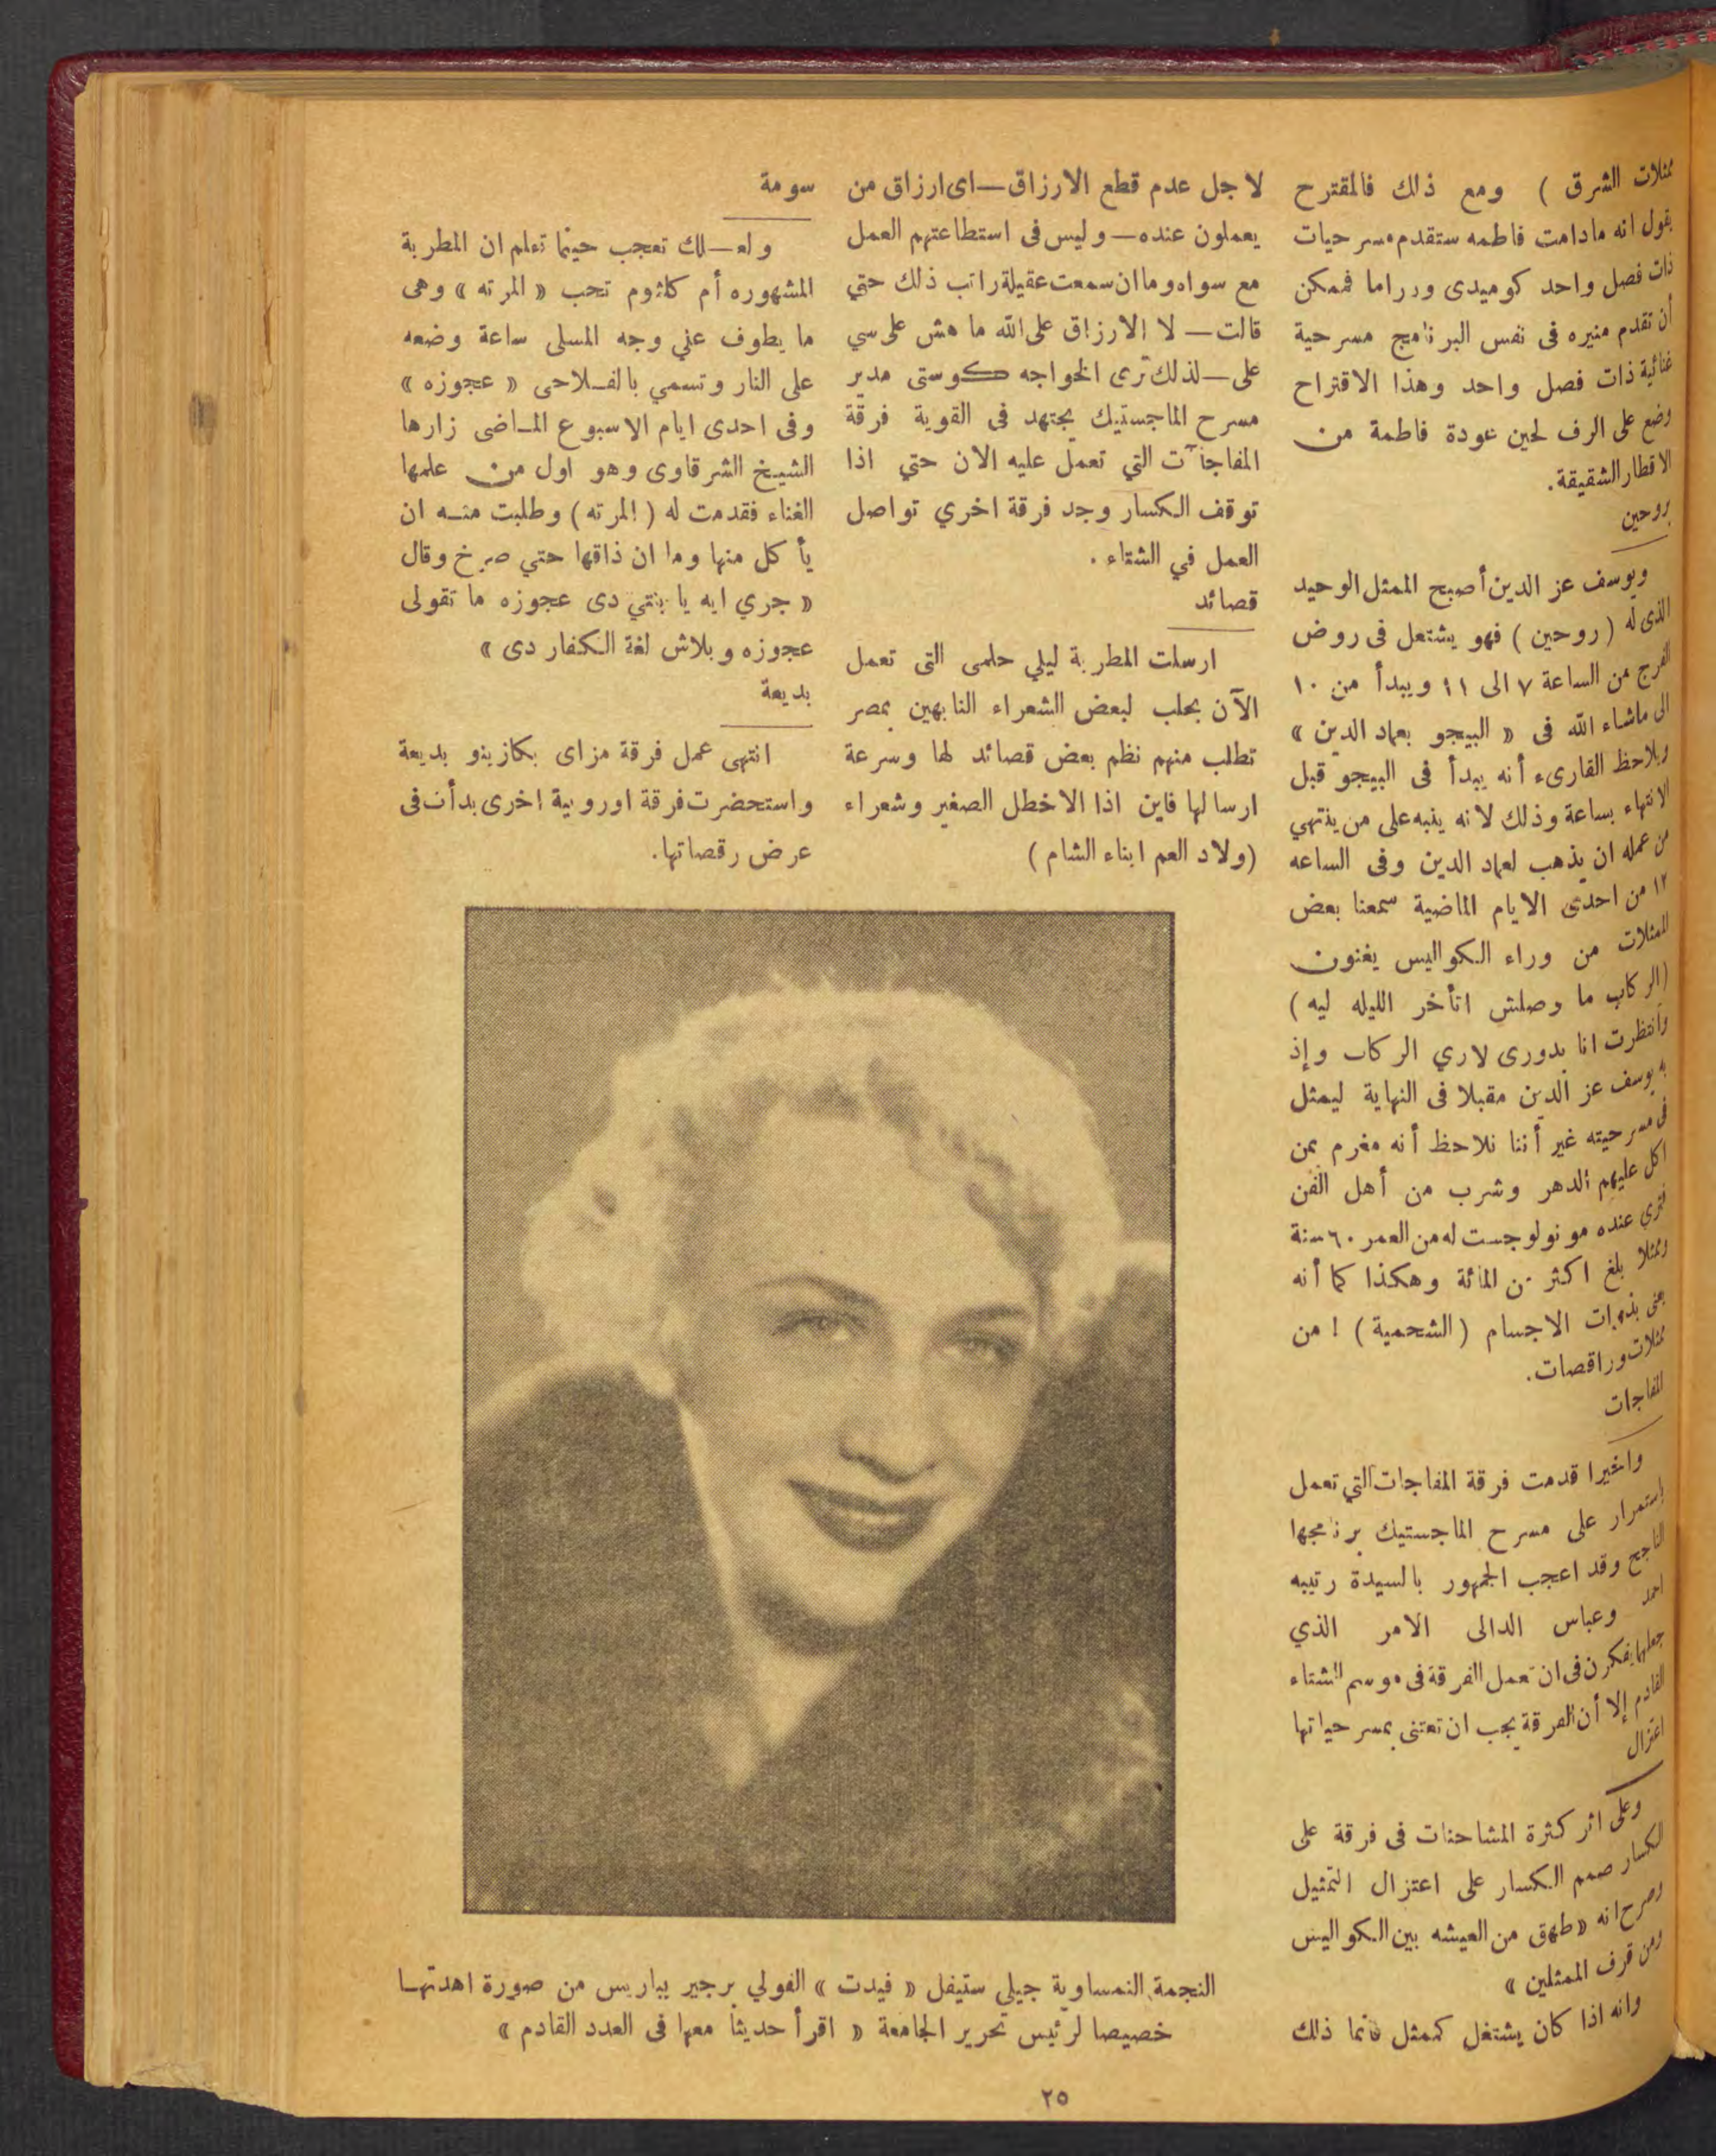 ممثلات الشرق ) ومع ذلك فالمقترح
يقول انه مادامت فاطمه ستقدم مسرحيات
ذات فصل واحد كوميدى ودراما فممكن
أن تقدم منيره فى نفس البرنامج مسرحية
غنائية ذات فصل واحد وهذا الاقتراح
وضع على الرف لحين عودة فاطمة من
الاقطار الشقيقة.
بروحين
ويوسف عز الدين أصبح الممثل الوحيد
الذى له ( روحين ) فهو يشتغل فى روض
الفرج من الساعة ٧ الى ١١ ويبدأ من ١٠
الى ماشاء الله فى « البيجو بعماد الدين »
ويلاحظ القارىء أنه يبدأ فى البيجو قبل
الانتهاء بساعة وذلك لانه ينبه على من ينتهي
من عمله ان يذهب لعماد الدين وفى الساعه
١٢ من احدى الايام الماضية سمعنا بعض
الممثلات من وراء الكواليس يغنون
(الركاب ما وصلش اتأخر الليله ليه )
وانتظرت انا بدورى لاري الركاب وإذ
به يوسف عز الدين مقبلا فى النهاية ليمثل
فى مسرحيته غير أننا نلاحظ أنه مغرم بمن
اكل عليهم الدهر وشرب من أهل الفن
فترى عنده مونولوجست له من العمر ٦٠ سنة
وممثلا بلغ اكثر من المائة وهكذا كما أنه
يعنى بذوات الاجسام ( الشحمية ) ! من
ممثلات وراقصات.
المفاجات
واخيرا قدمت فرقة المفاجات التي تعمل
باستمرار على مسرح الماجستيك برنامجها
الناجح وقد اعجب الجمهور بالسيدة رتيبه
احمد وعباس الدالى الامر الذي
جعلها يفكرن فى ان تعمل الفرقة فى موسم الشتاء
القادم إلا أن الفرقة يجب ان تعتنى بمسرحياتها
اعتزال
وعلى اثر كثرة المشاحنات فى فرقة على
الكسار صمم الكسار على اعتزال التمثيل
وصرح انه « طهق من العيشه بين الكواليس
ومن قرف الممثلين »
وانه اذا كان يشتغل كممثل فانما ذلك
لاجل عدم قطع الارزاق — اى ارزاق من
يعملون عنده — وليس فى استطاعتهم العمل
مع سواه وما ان سمعت عقيلة راتب ذلك حتي
قالت — لا الارزاق على الله ما هش على سي
على — لذلك ترى الخواجه كوستى مدير
مسرح الماجستيك يجتهد فى القوية فرقة
المفاجآت التي تعمل عليه الان حتي اذا
توقف الكسار وجد فرقة اخري تواصل
العمل في الشتاء .
قصائد
ارسلت المطربة ليلي حلمى التى تعمل
الآن بحلب لبعض الشعراء النابهين بمصر
تطلب منهم نظم بعض قصائد لها وسرعة
ارسالها فاين اذا الاخطل الصغير وشعراء
(ولاد العم ابناء الشام )
سومة
ولعــلك تعجب حينما تعلم ان المطربة
المشهوره أم كلثوم تحب « المرته » وهى
ما يطوف على وجه المسلى ساعة وضعه
على النار وتسمي بالفــلاحى « عجوزه »
وفى احدى ايام الاسبوع المــاضى زارها
الشيخ الشرقاوى وهو اول من علمها
الغناء فقدمت له ( المرته ) وطلبت منــه ان
يأكل منها وما ان ذاقها حتي صرخ وقال
« جري ايه يا بنتي دى عجوزه ما تقولى
عجوزه وبلاش لغة الكفار دى »
بديعة
انتهى عمل فرقة مزاى بكازينو بديعة
واستحضرت فرقة اوروبية اخرى بدأت فى
عرض رقصاتها.
النجمة النمساوية جيلى ستيفل « فيدت » الفولي برجير بباريس من صورة اهدتهــا
خصيصا لرئيس تحرير الجامعة « اقرأ حديثا معها فى العدد القادم »
٢٥